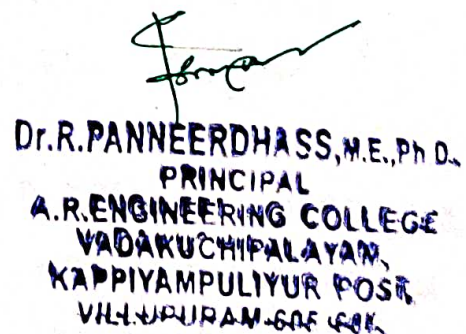 Dr.R.PANNEERDHASS,M.E.,Ph D.,
PRINCIPAL
A.R.ENGINEERING COLLEGE
VADAKUCHIPALAYAM,
KAPPIYAMPULIYUR POST,
VILLUPURAM